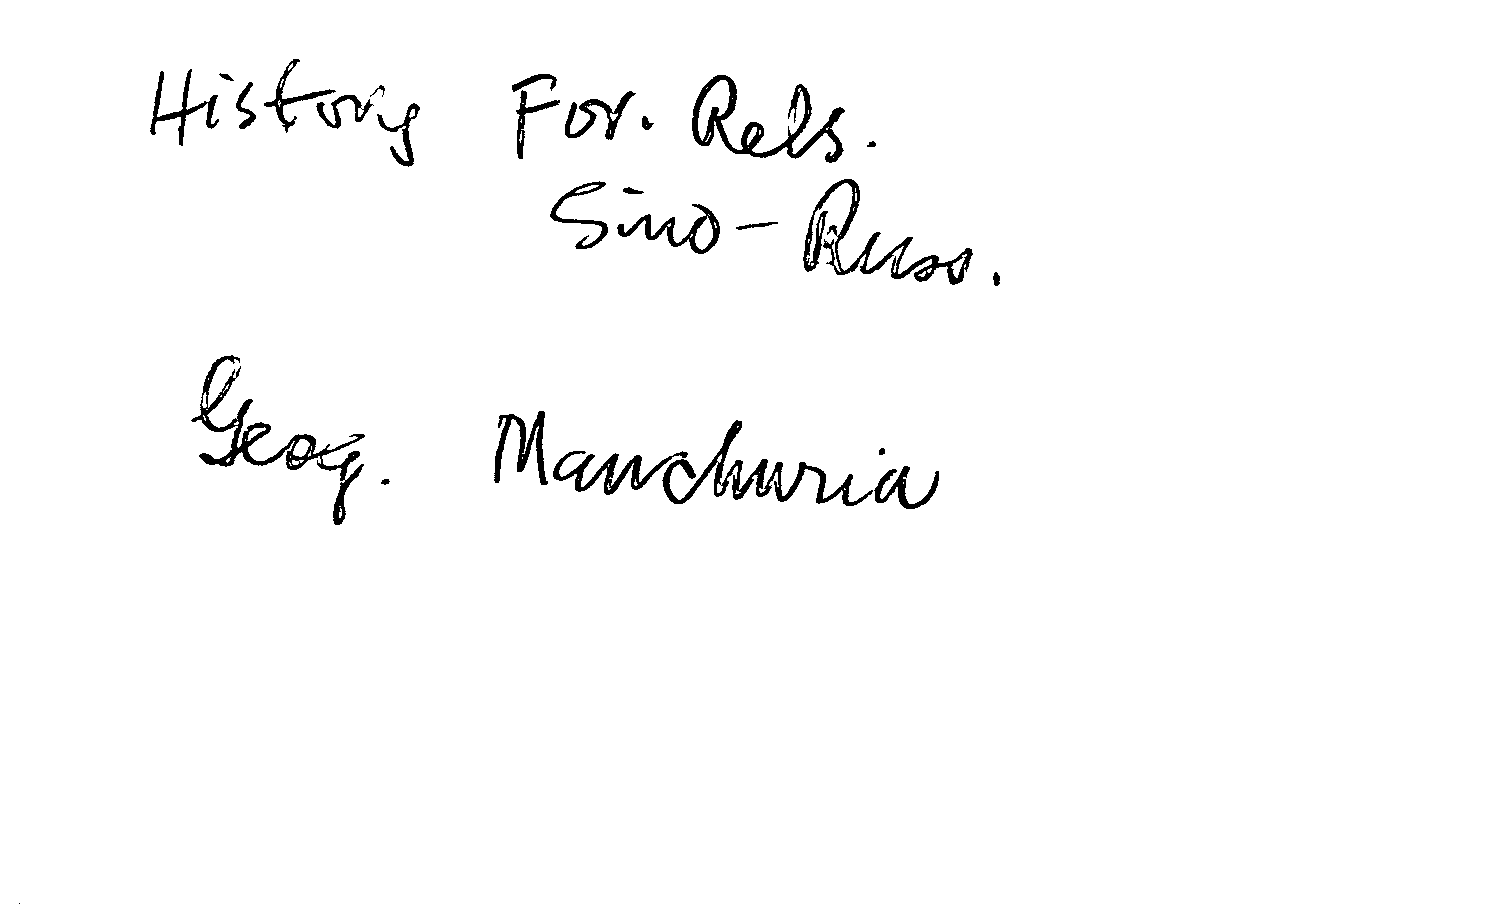 History For. Rels.
Sino-Russ.
Geog. Manchuria